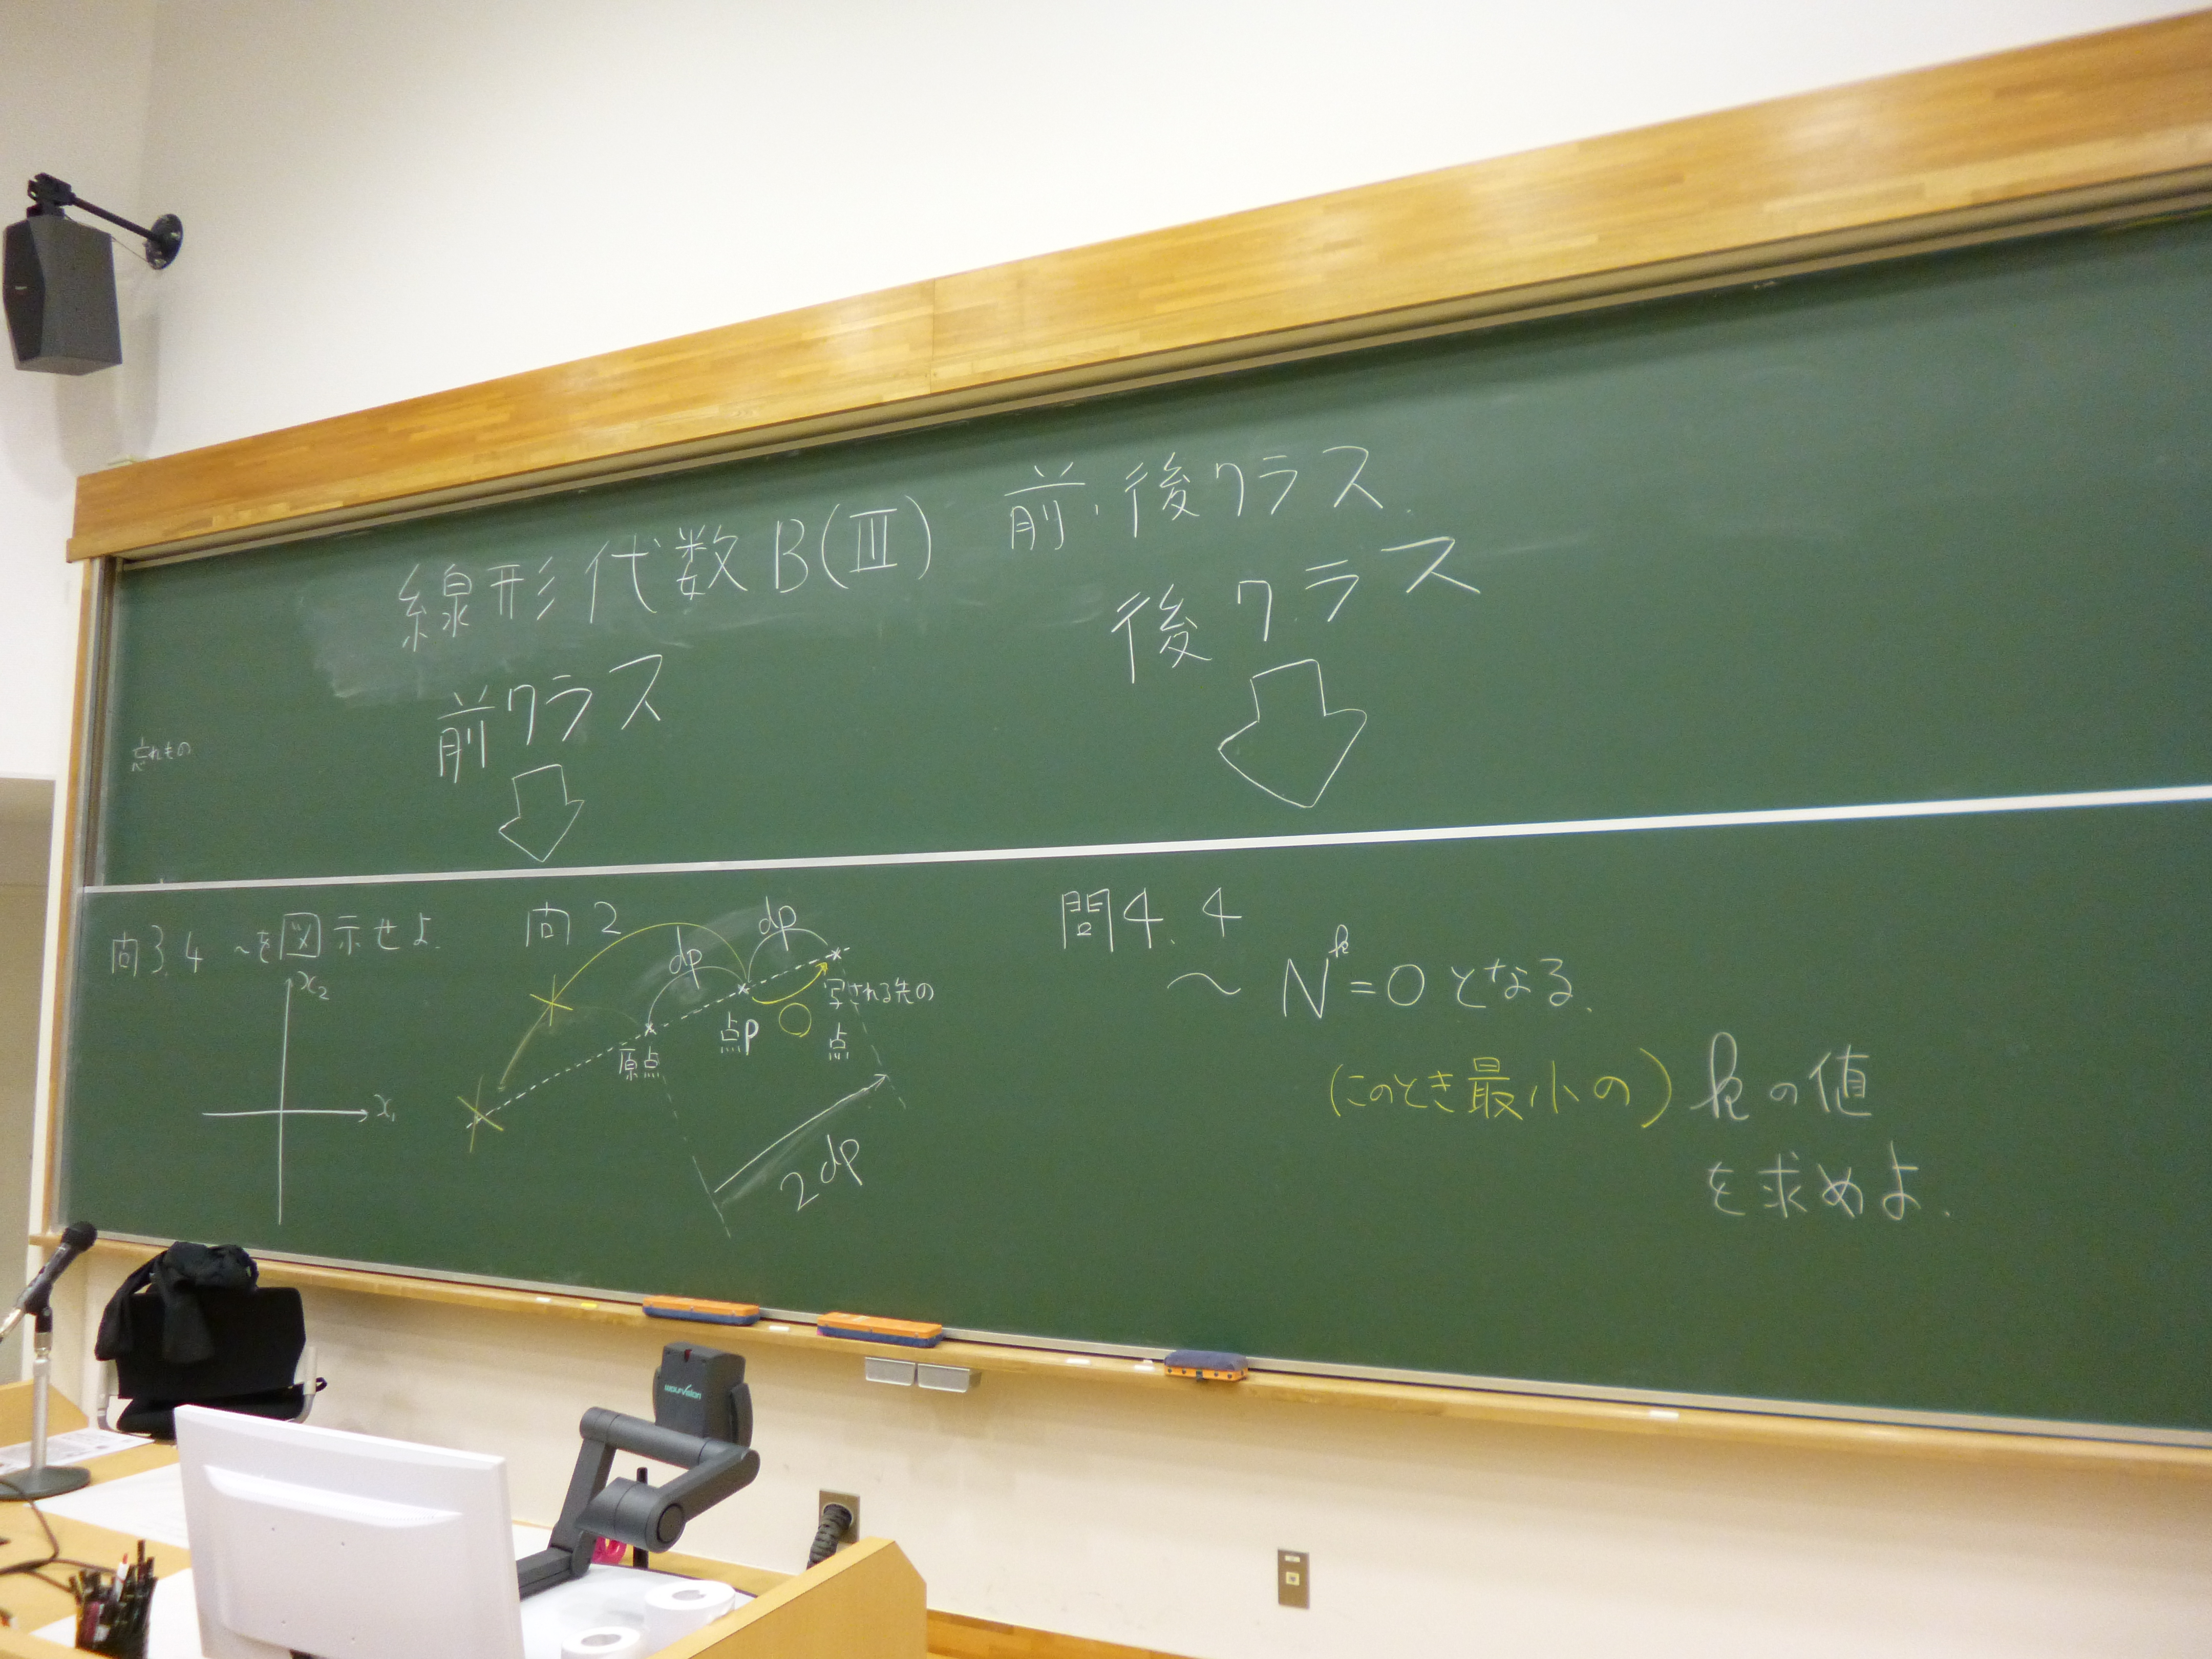 線形代数B(Ⅲ) 前・後クラス.
前クラス
後クラス
忘れもの
問3.4 ～を図示せよ.
x₂
x₁
問2
dp
dp
原点
点p
写される先の
点
2dp
問4.4
～ Nᵏ=0となる.
(このとき最小の) kの値
を求めよ.